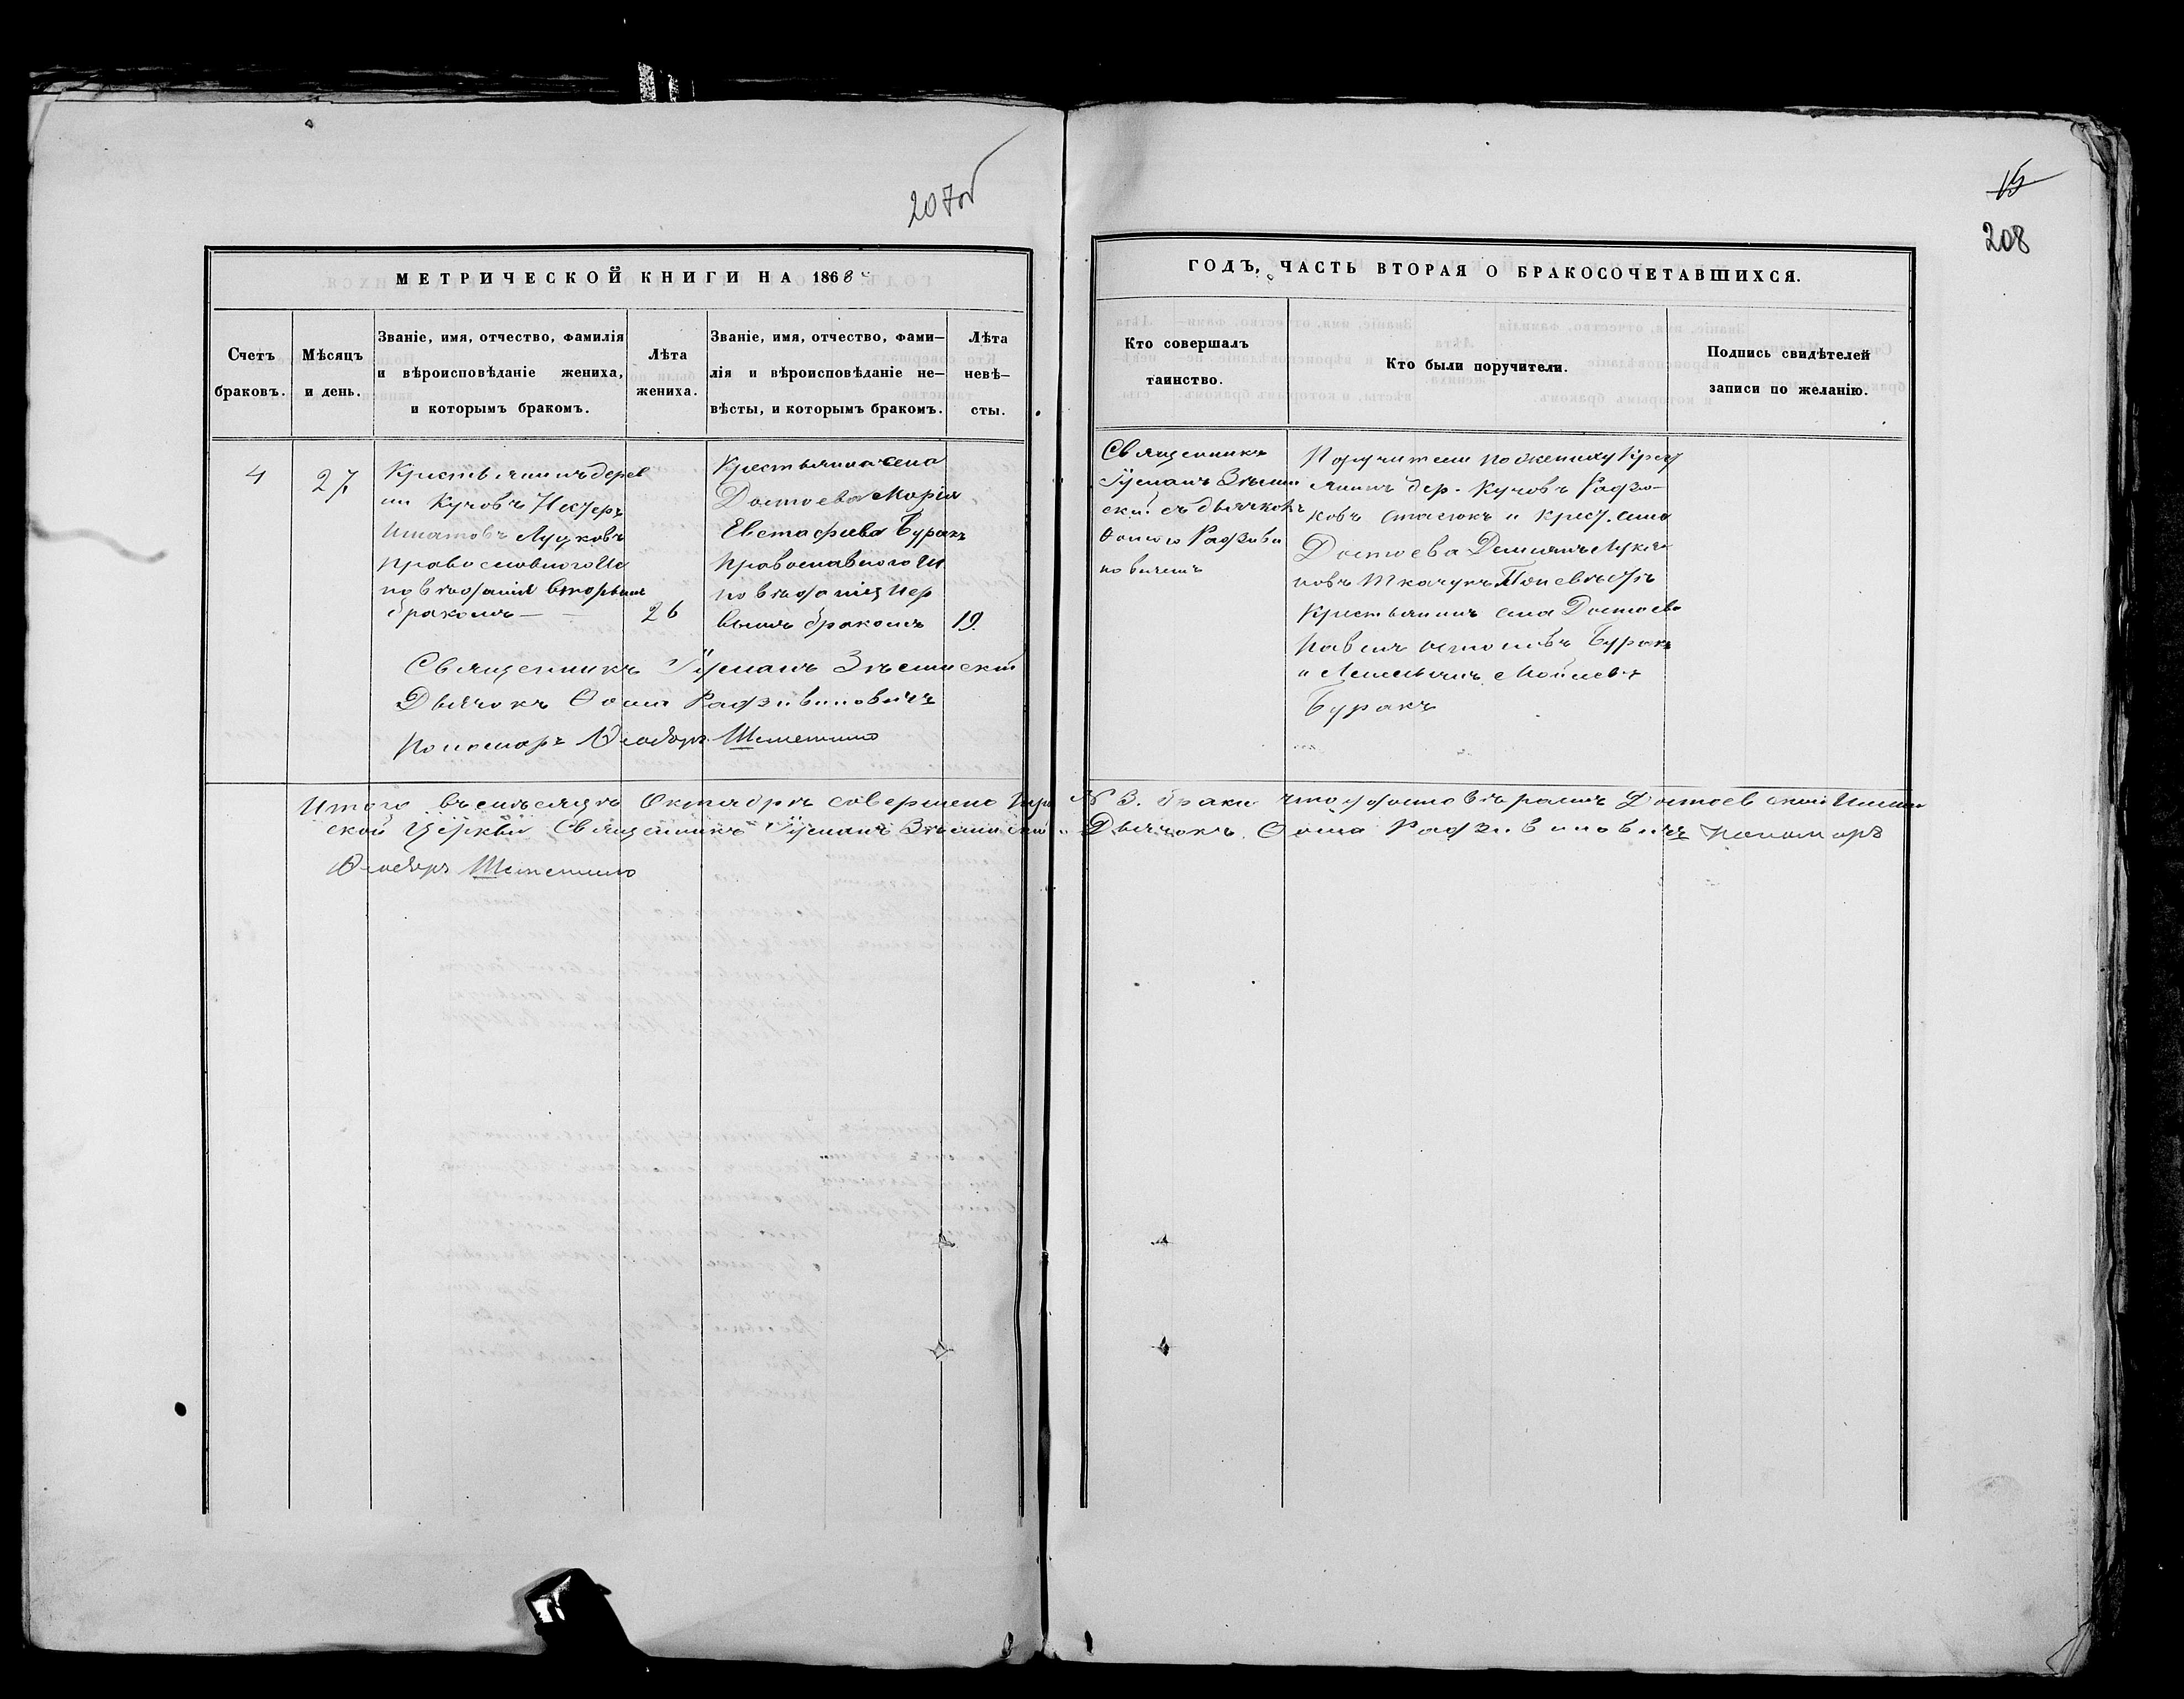 207об
15
208
МЕТРИЧЕСКОЙ КНИГИ НА 1868
ГОДЪ, ЧАСТЬ ВТОРАЯ О БРАКОСОЧЕТАВШИХСЯ.
Счетъ
браковъ.
Мѣсяцъ
и день.
Званіе, имя, отчество, фамилія
и вѣроисповѣданіе жениха,
и которымъ бракомъ.
Лѣта
жениха.
Званіе, имя, отчество, фами—
лія и вѣроисповѣданіе не—
вѣсты, и которымъ бракомъ.
Лѣта
невѣ—
сты.
Кто совершалъ
таинство.
Кто были поручители.
Подпись свидѣтелей
записи по желанію.
4
27
Крестьянинъ дерев
ни Кучовъ
Игнатовъ Луцковъ
православного Ис
повѣданія вторымъ
бракомъ —
26
Крестьянка села
Достоева Марія
Евстафьева Буракъ
Православного И
повѣданія пер
вымъ бракомъ
19.
Священникъ
Зѣлин
скій съ дьячкомъ
Ѳомою Радзиви
новичемъ
Поручители по жениху Крест
янинъ дер. Кучовъ
ковъ Стасюкъ и Крест. села
Достоева Демьянъ Лукья
новъ Ткачукъ По невѣстѣ
Крестьянинъ села Достоева
Павелъ Буракъ
и
Буракъ
Священникъ Зѣлинскій
Дьячокъ Ѳома Радзивиновичъ
Пономарь Ѳеодоръ Шеметилло
Итого въ мѣсяцѣ Октябрѣ совершено три № 3. брака
ской Церкви Священникъ Зѣлинскій Дьячокъ Ѳома Радзивиновичъ пономарь
Ѳеодоръ Шеметилло